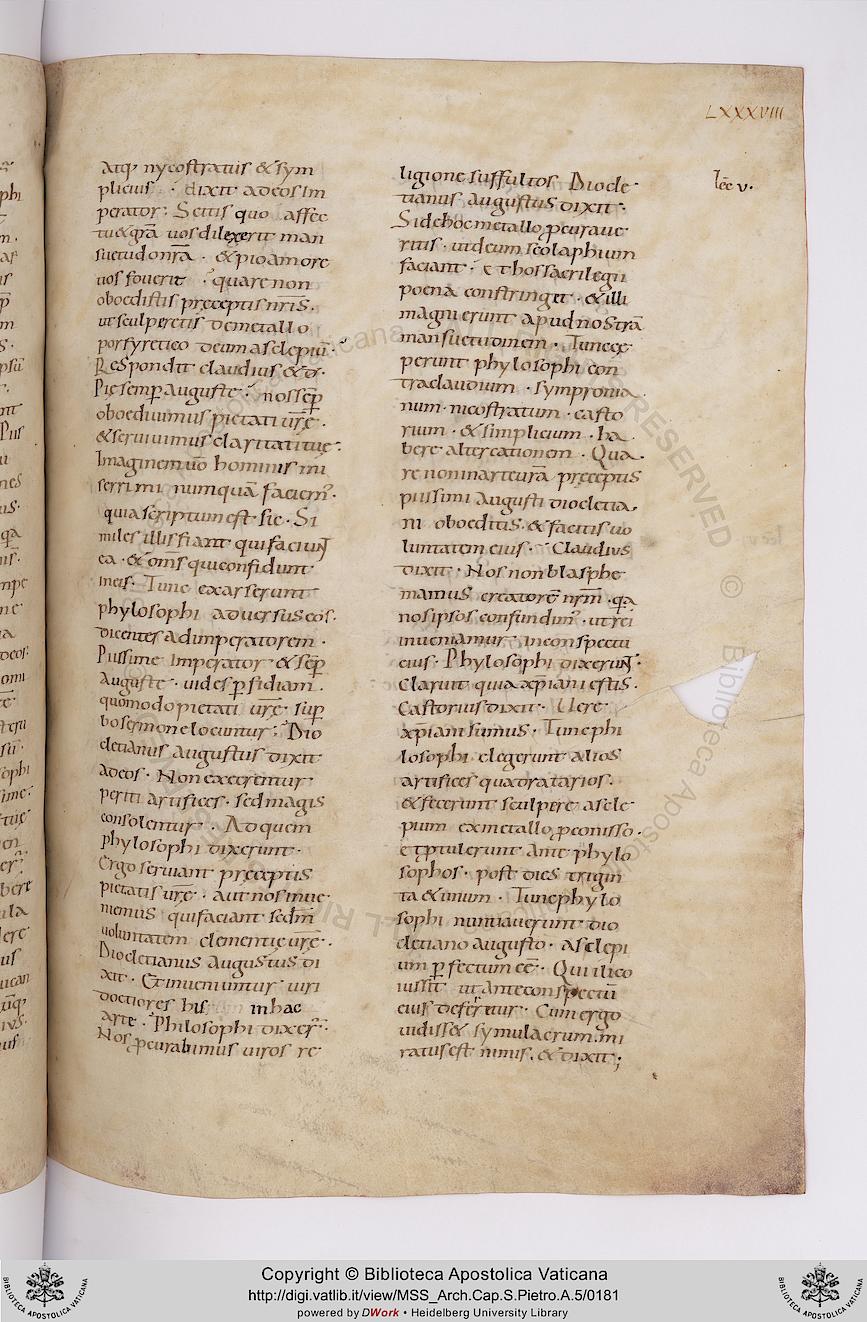 LXXXVIII
atq; nycostratus & sym
plicius · dixit ad eos im
perator; Scitis quo affec
tu & grā uos dilexerit man
suetudo nrā · & pio amore
uos fouerit · quare non
oboedistis preceptis nrīs ·
ut sculperetis de metallo
porfyretico deum asclepiū ·
Respondit claudius & d̄r ·
Pie semp̄ Auguste · nos sēp̄
oboediuimus pietati urę̄ ·
& seruiuimus claritati tuę ·
Imaginem uō hominis mi
serrimi numquā faciem' ·
quia scriptum est sic · Si
miles illis fiant qui faciunt
ea · & om̄s qui confidunt
in eis · Tunc exarserunt
phylosophi aduersus eos ·
dicentes ad imperatorem ·
Piissime Imperator & sēp̄
Auguste · uides p̄fidiam ·
quomodo pietati urę̄ · sup̄
bo sermone locuntur; Dio
cletianus augustus dixit
ad eos · Non execrentur
periti artifices · sed magis
consolentur · Ad quem
phylosophi dixerunt ·
Ergo seruiant preceptis
pietatis urę̄ · aut nos inue
niemus qui faciant sedm̄
uoluntatem clementię urę̄ ·
Diocletianus Augustus di
xit · Et inueniuntur uiri
doctiores his in hac
arte · Philosophi dixer̄ ·
Nos p̄curabimus uiros re
ligione suffultos Diocle
tianus Augustus dixit ·
Si de hoc metallo p̄curaue
ritis · ut deum scolaphium
faciant · et hos sacrilegii
poena constringit · & illi
magni erunt apud nostrā
mansuetudinem · Tunc cę
perunt phylosophi con
tra claudium · symproria
num · nicostratum · casto
rium · & simplicium · ha
bere altercationem · Qua
re non in arte urā preceptis
piissimi Augusti diocletia
ni oboeditis · & facitis uo
luntatem eius · Claudius
dixit · Nos non blasphe
mamus creatorē nrm̄ · q̄a
nos ipsos confundim' · ut rei
inueniamur in conspectu
eius · Phylosophi dixerunt ·
Claruit quia xp̄iani estis ·
Castorius dixit · Uere
xp̄iani sumus · Tunc phi
losophi elegerunt alios
artifices quadratarios ·
& fecerunt sculpere ascle
pium ex metallo p̄conisso ·
et p̄tulerunt ante phylo
sophos · post dies trigin
ta & unum · Tunc phylo
sophi nuntiauerunt dio
cletiano augusto · asclepi
um p̄fectum eē · Qui ilico
iussit ut ante conspectū
eius deferretur · Cum ergo
uidiss& symulacrum · mi
ratus est nimis · & dixit;
lēc v·
Copyright © Biblioteca Apostolica Vaticana
http://digi.vatlib.it/view/MSS_Arch.Cap.S.Pietro.A.5/0181
powered by DWork • Heidelberg University Library
BIBLIOTECA APOSTOLICA VATICANA
BIBLIOTECA APOSTOLICA VATICANA